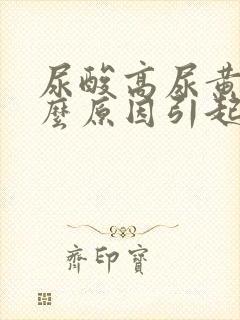 尿酸高尿黄
麼原因引起
齊印寶